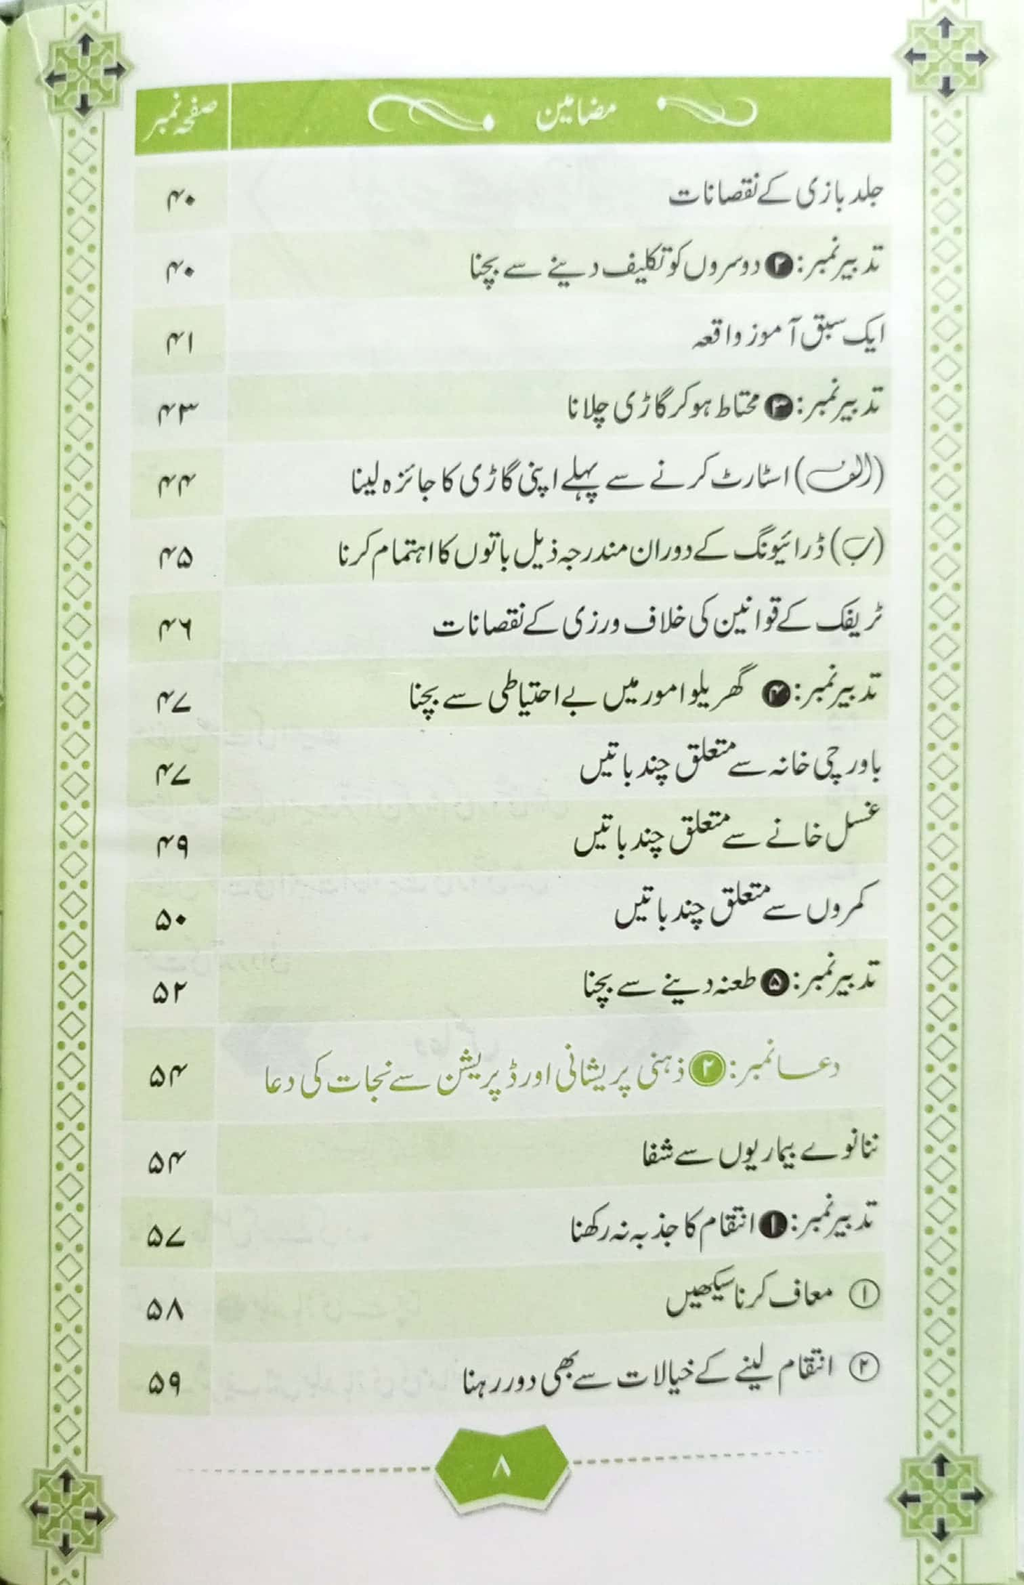 مضامین صفحہ نمبر
جلد بازی کے نقصانات ۴۰
تدبیر نمبر: ۲ دوسروں کو تکلیف دینے سے بچنا ۴۰
ایک سبق آموز واقعہ ۴۱
تدبیر نمبر: ۳ محتاط ہو کر گاڑی چلانا ۴۳
(الف) اسٹارٹ کرنے سے پہلے اپنی گاڑی کا جائزہ لینا ۴۴
(ب) ڈرائیونگ کے دوران مندرجہ ذیل باتوں کا اہتمام کرنا ۴۵
ٹریفک کے قوانین کی خلاف ورزی کے نقصانات ۴۶
تدبیر نمبر: ۴ گھریلو امور میں بے احتیاطی سے بچنا ۴۷
باورچی خانہ سے متعلق چند باتیں ۴۷
غسل خانے سے متعلق چند باتیں ۴۹
کمروں سے متعلق چند باتیں ۵۰
تدبیر نمبر: ۵ طعنہ دینے سے بچنا ۵۲
دعا نمبر: ۲ ذہنی پریشانی اور ڈپریشن سے نجات کی دعا ۵۴
ننانوے بیماریوں سے شفا ۵۴
تدبیر نمبر: ۱ انتقام کا جذبہ نہ رکھنا ۵۷
① معاف کرنا سیکھیں ۵۸
② انتقام لینے کے خیالات سے بھی دور رہنا ۵۹
۸